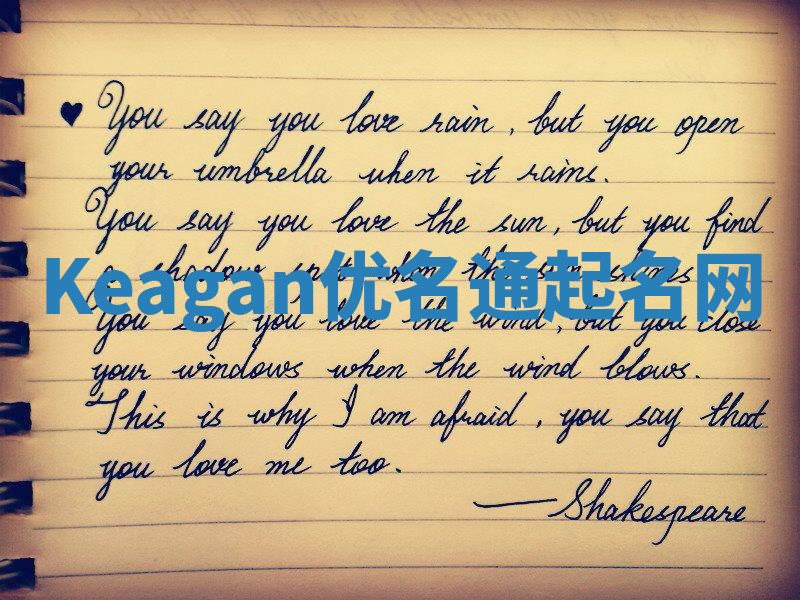 ♥ You say you love rain, but you open
your umbrella when it rains.
You say you love the sun, but you find
a shadow spot when the sun shines
Keagan优名通起名网
You say you love the wind, but you close
your windows when the wind blows.
This is why I am afraid, you say that
you love me too.
—Shakespeare